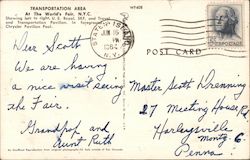 TRANSPORTATION AREA
At The World's Fair, N.Y.C.
Showing left to right, U.S. Royal, SKF, and Travel
and Transportation Pavilion. In foreground
Chrysler Pavilion Pool.
WF408
STATEN ISLAND
JUN 16
PM
1964
N.Y.
POST CARD
Dear Scott
We are having
a nice visit seeing
the Fair.
Grandpop and
Aunt Ruth
Master Scott
27 Meeting House Rd
Harleysville
Montg Co
Penna